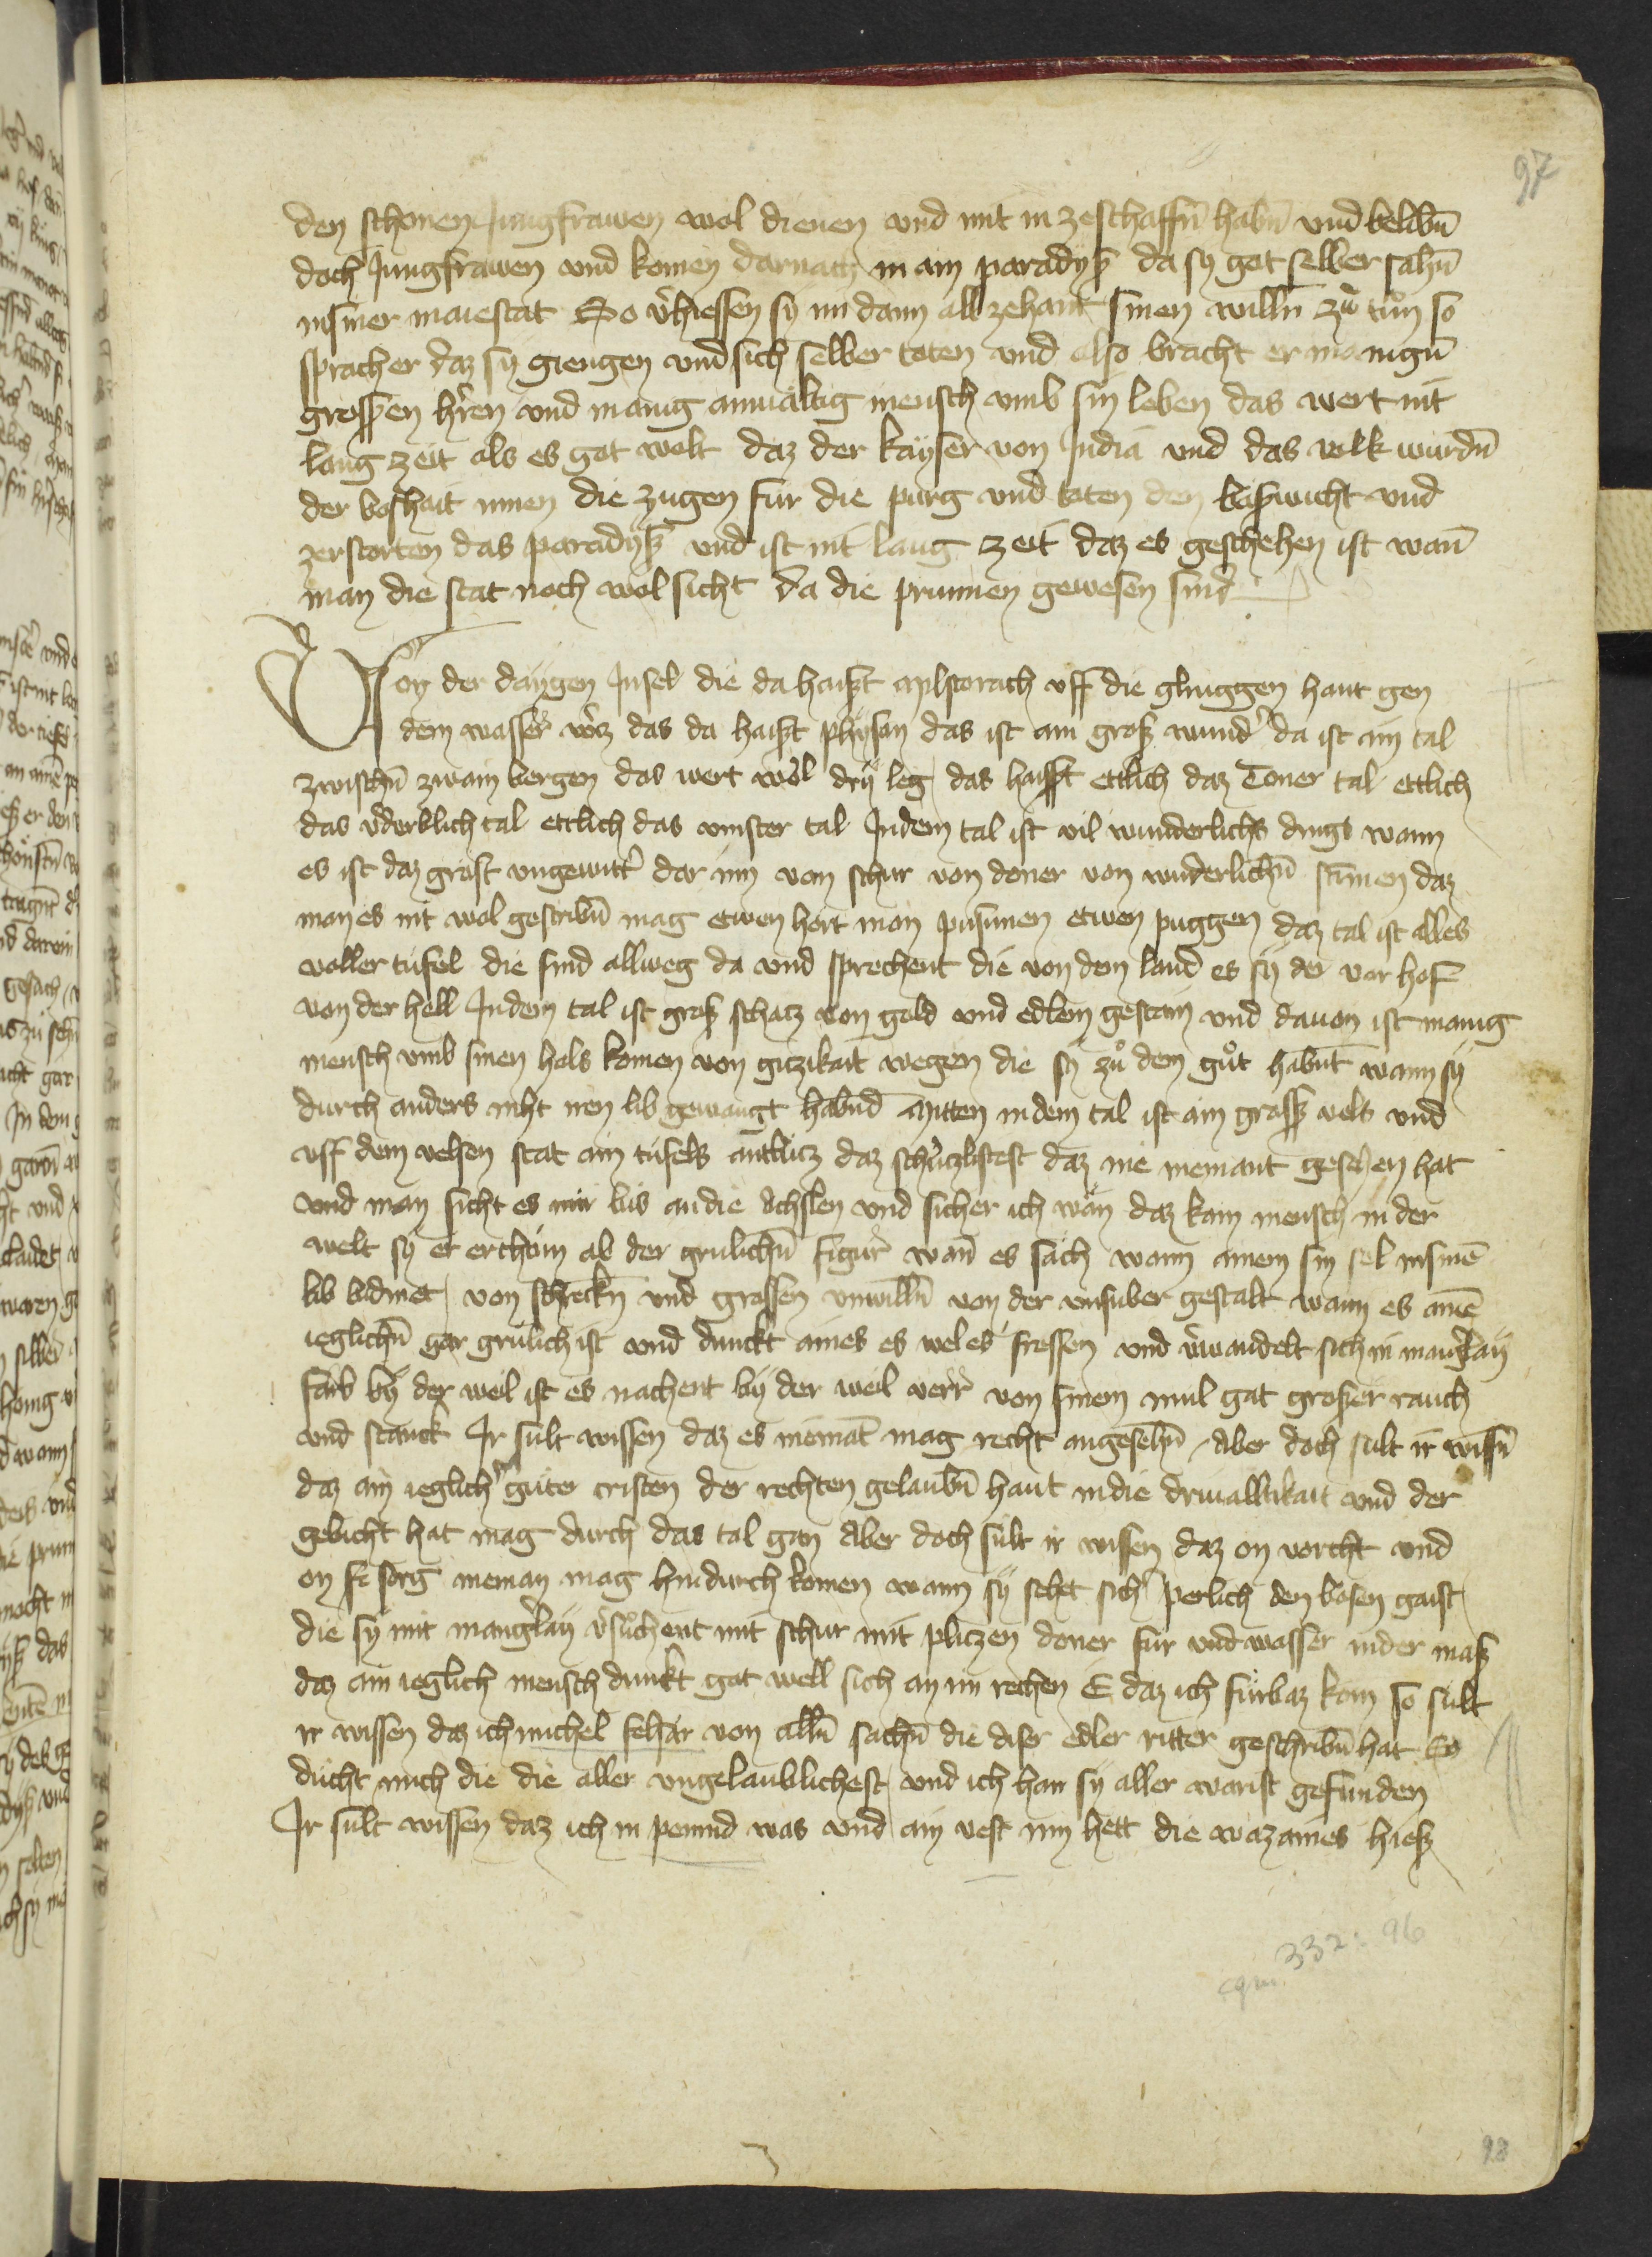 97
den schonen Jungfrawen wol dienen vnd mit in zeschaffn̄ habn̄ vnd belibn̄
doch Jungfrawen vnd komen darnach in ain paradyß da sy got selber sahn̄
in siner maiestat So v̾hiessen sy im dann all zehant sinen willn̄ zů tůn so
sprach er daz sy giengen vnd sich selber toten vnd also bracht er manign̄
grossen h̾ren vnd manig ainualtig mensch vmb sin leben das wert nit
lang zeit als es got wolt daz der kayser von India vnd das volk wurdn̄
der boshait innen die zugen für die purg vnd toten den boswicht vnd
zerstorten das paradyß vnd ist nit lang zeit daz es geschehen ist wan̄
man die stat noch wol sicht da die prunnen gewesen sind
Von der daygen Insel die da haißt mylstorach vff die glinggen hant gen
dem wasser wz das da haißt physon das ist ain groß wund̾ da ist ain tal
zwischn̄ zwain bergen das wert wol dry leg das haisst ettlich daz Toner tal ettlich
das v̾derblich tal ettlich das vinster tal In dem tal ist vil wunderlichs dings wann
es ist daz gröst vngewitt̾ dar inn von schur von doner von wunderlichn̄ stimen daz
man es nit wol gescribn̄ mag etwen hört man pusunen etwen puggen daz tal ist alles
voller tüfel die sind allweg da vnd sprechent die von dem land es sy der vor hof
von der hell In dem tal ist groß schatz von gold vnd edlem gestain vnd dauon ist manig
mensch vmb sinen hals komen von gitzikait wegen die sy zů dem gůt habnt wann sy
durch anders niht iren lib gewaugt habnd Mitten in dem tal ist ain gross vels vnd
vff dem velsen stat ain tüfels antlütz daz schützlistest daz nie niemant gesehen hat
vnd man sicht es nür bis an die achslen vnd sicher ich wän daz kain mensch in der
welt sy er erchöm ab der grulichn̄ figur̾ wan̄ es sach wann ainem sin sel in sinē
lib bidmet von schreckn̄ vnd grossen vnwilln̄ von der vnsuber gestalt wann es ainē
ieglichn̄ gar grulich ist vnd dunckt aines es wel es fressen vnd v̾wandelt sich in maniglay
farb by der weil ist es nachent by der weil verr̾ von sinem mul gat grosser rauch
vnd stanck Ir sult wissen daz es niemāt mag recht angesehn̄ Aber doch sult ir wissn̄
daz ain ieglich̾ güter cristen der rechten gelaubn̄ haut in die driualtikait vnd der
gebicht hat mag durch das tal gan Aber doch sult ir wissen daz on vorcht vnd
on sorg nieman mag hindurch komen wann sy sehet sich perlich den bosen gaist
die sy mit mang̾lay v̾sůchent mit schur mit plitzen doner fur vnd wasser in der maß
daz ain ieglich mensch dunkt got well sich an im rechen E daz ich fürbaz kom so sült
ir wissen daz ich michel felsar von alln̄ sachn̄ die diser edler ritter geschribn̄ hat Es
ducht mich die die aller vngelaublichest vnd ich han sy aller warist gefunden
Ir sult wissen daz ich in pemund was vnd ain vest inn hett die wazaines hieß
cgm. 332: 96
98